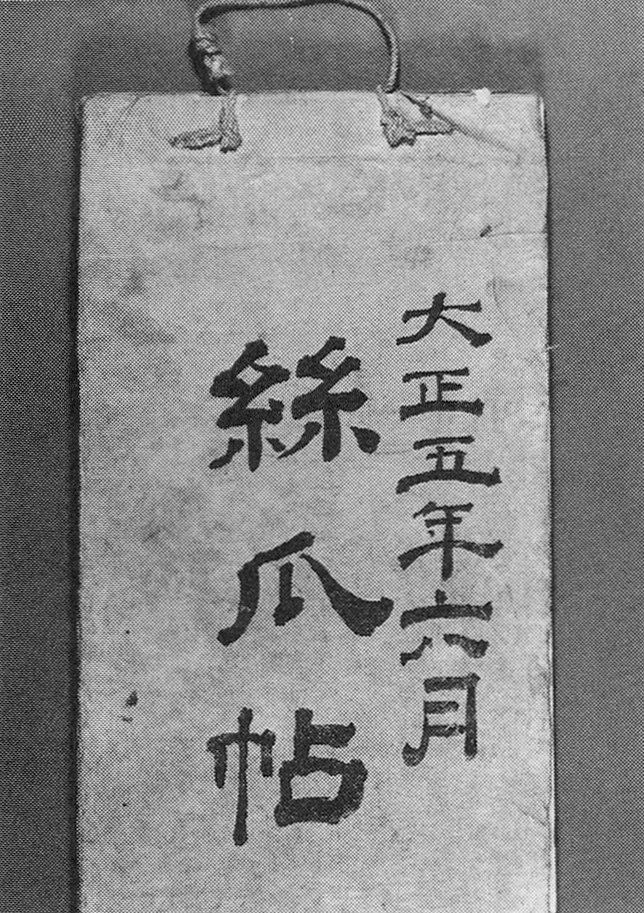 大正五年六月
絲瓜帖